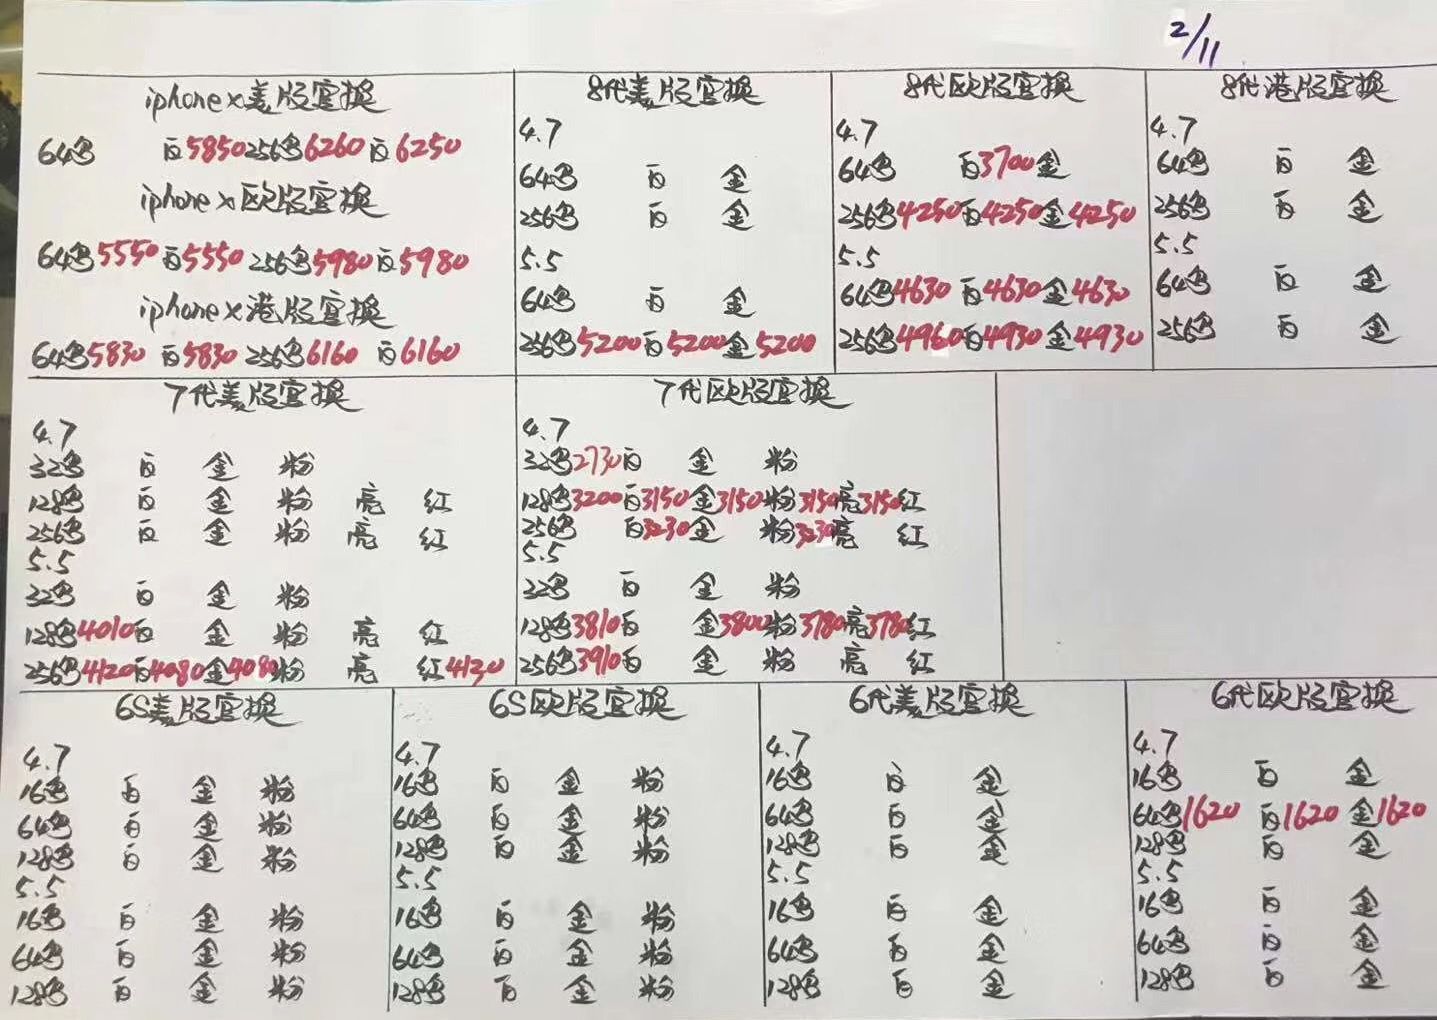 2/11
iphone x美版官换
64黑 白5850 256黑6260 白6250
iphone x欧版官换
64黑5550 白5550 256黑5980 白5980
iphone x港版官换
64黑5830 白5830 256黑6160 白6160
8代美版官换
4.7
64黑 白 金
256黑 白 金
5.5
64黑 白 金
256黑5200白5200金5200
8代欧版官换
4.7
64黑 白3700金
256黑4250白4250金4250
5.5
64黑4630 白4630金4630
256黑4960白4930金4930
8代港版官换
4.7
64黑 白 金
256黑 白 金
5.5
64黑 白 金
256黑 白 金
7代美版官换
4.7
32黑 白 金 粉
128黑 白 金 粉 亮 红
256黑 白 金 粉 亮 红
5.5
32黑 白 金 粉
128黑4010白 金 粉 亮 红
256黑4120白4080金4080粉 亮 红4130
7代欧版官换
4.7
32黑2730白 金 粉
128黑3200白3150金3150粉3150亮3150红
256黑 白3230金 粉3230亮 红
5.5
32黑 白 金 粉
128黑3810白 金3800粉3780亮3780红
256黑3910白 金 粉 亮 红
6S美版官换
4.7
16黑 白 金 粉
64黑 白 金 粉
128黑 白 金 粉
5.5
16黑 白 金 粉
64黑 白 金 粉
128黑 白 金 粉
6S欧版官换
4.7
16黑 白 金 粉
64黑 白 金 粉
128黑 白 金 粉
5.5
16黑 白 金 粉
64黑 白 金 粉
128黑 白 金 粉
6代美版官换
4.7
16黑 白 金
64黑 白 金
128黑 白 金
5.5
16黑 白 金
64黑 白 金
128黑 白 金
6代欧版官换
4.7
16黑 白 金
64黑1620 白1620 金1620
128黑 白 金
5.5
16黑 白 金
64黑 白 金
128黑 白 金